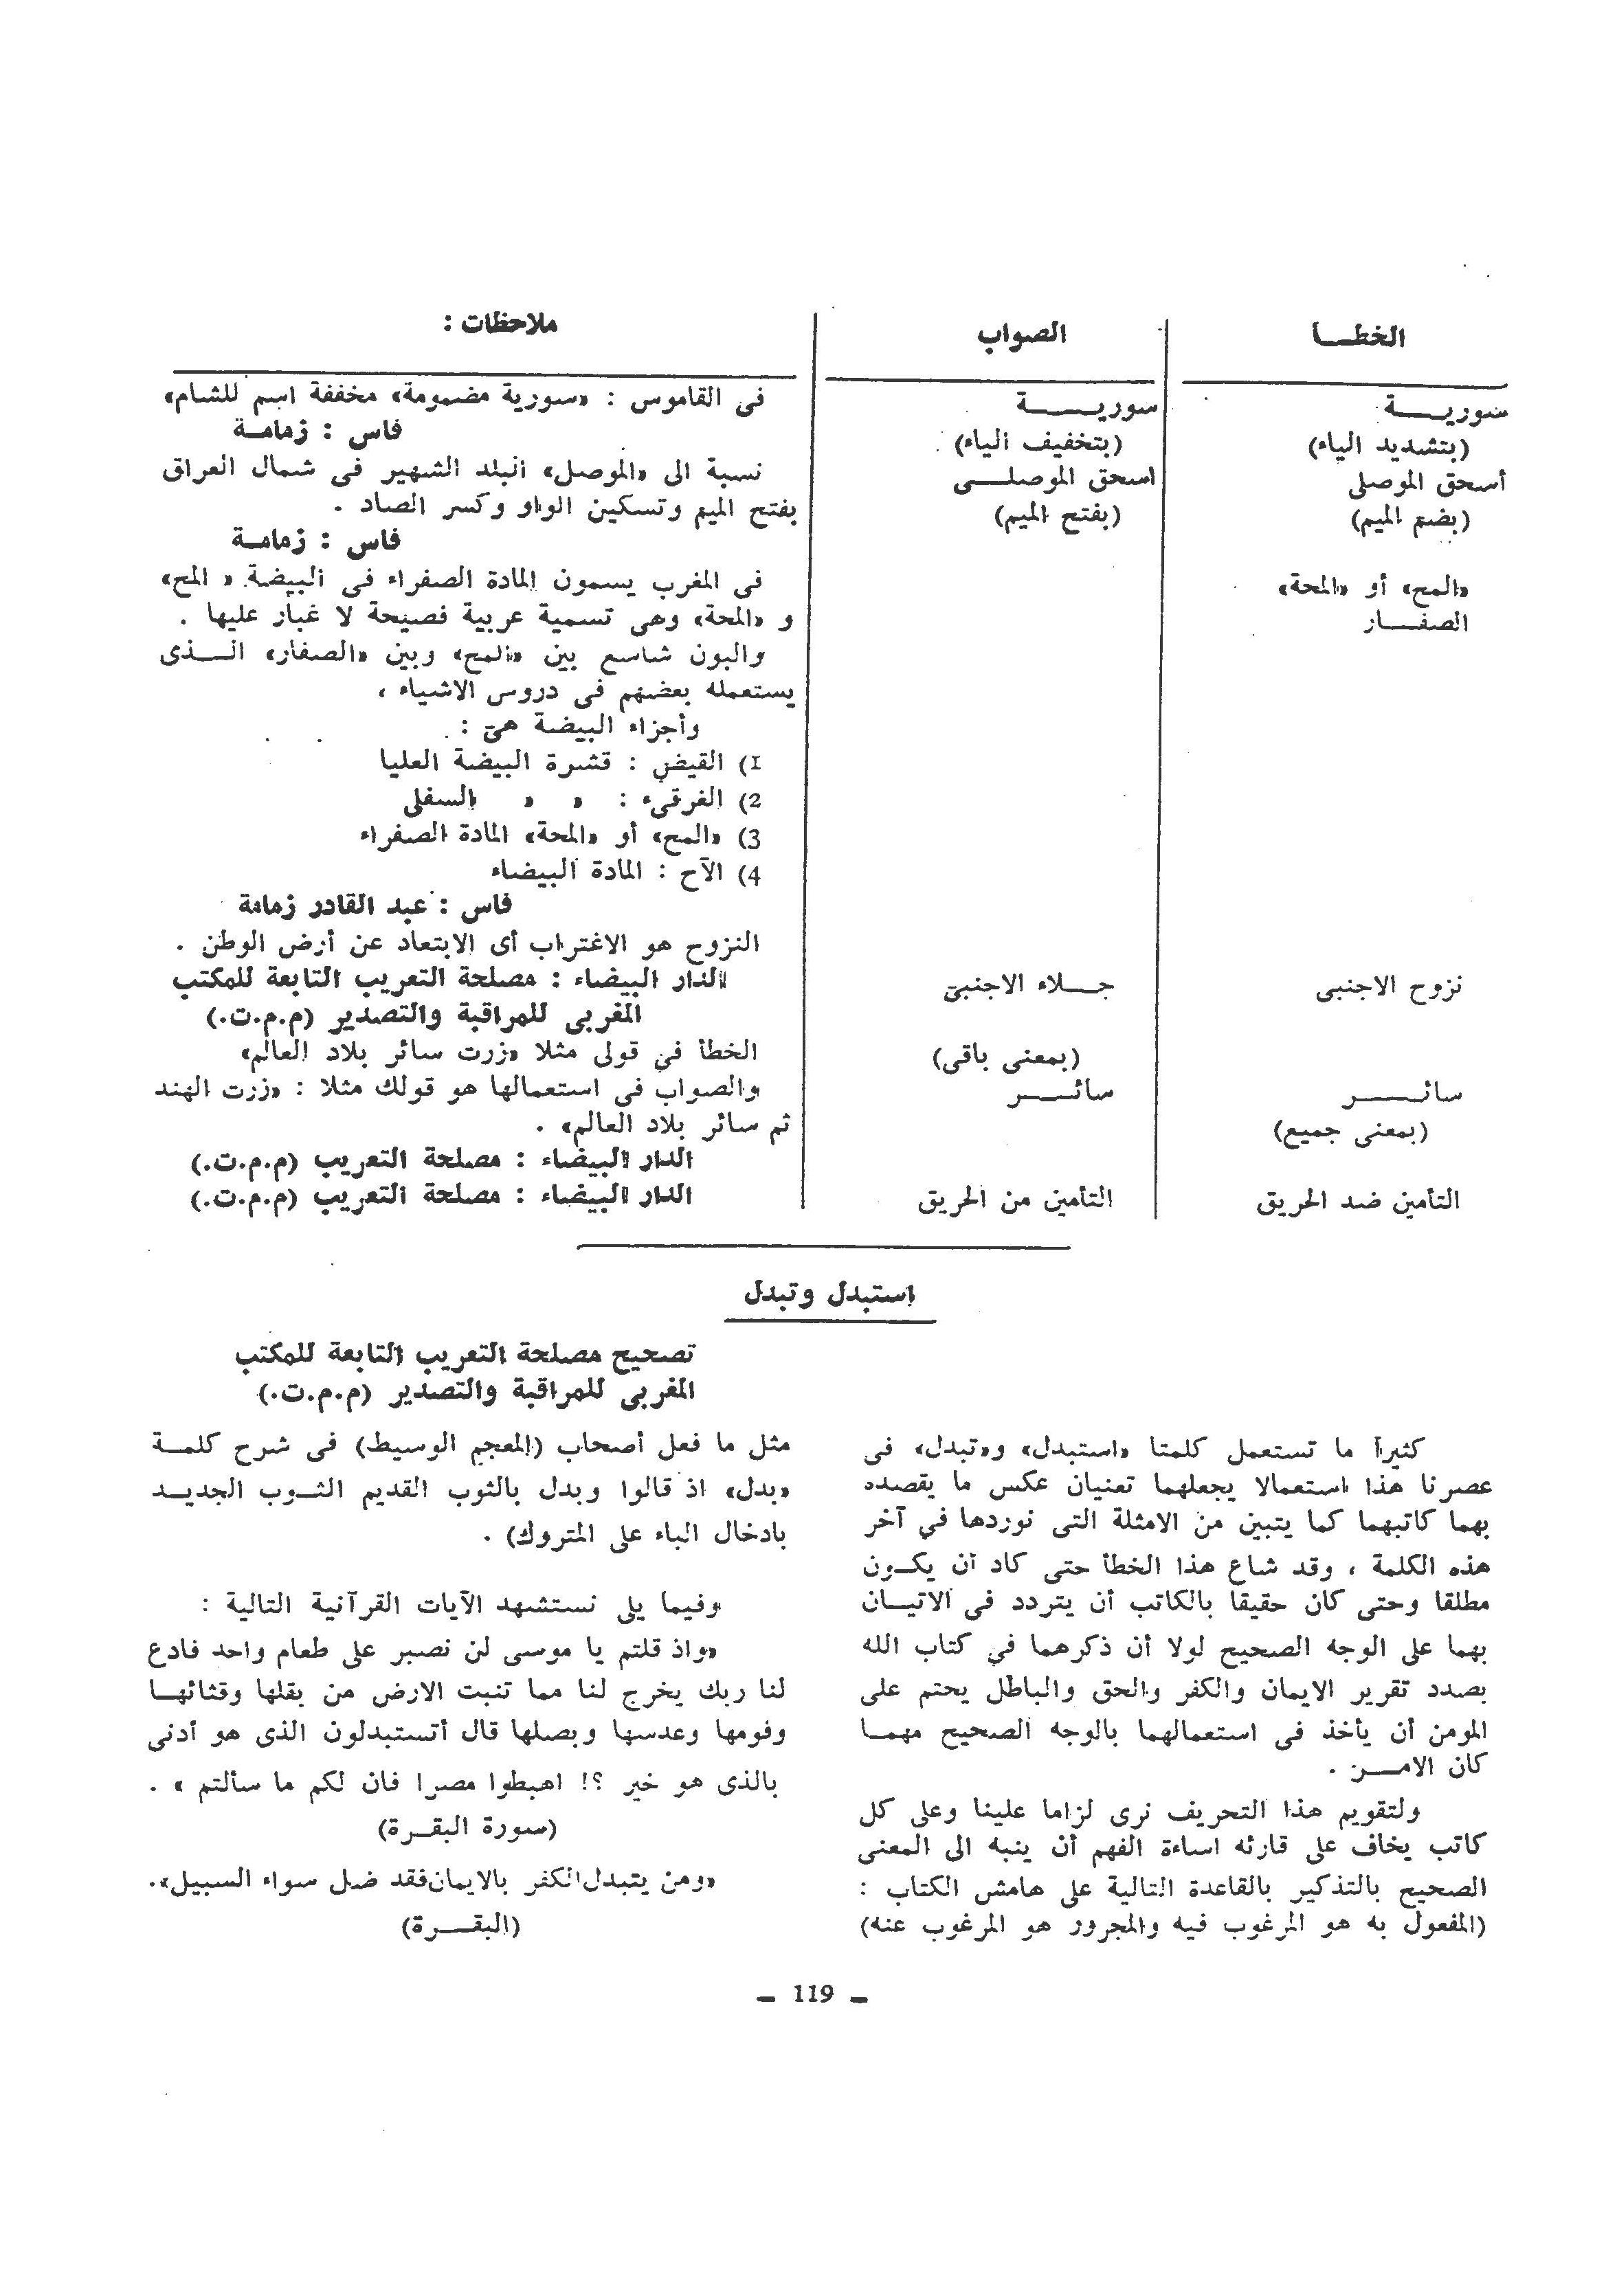 الخطـــأ
الصواب
ملاحظات :
سوريـــــة
سوريـــــة
فى القاموس : «سورية مضمومة» مخففة اسم للشام»
(بتشديد الياء)
(بتخفيف الياء)
فاس : زمامـة
أسحق الموصلى
اسحق الموصلـــى
نسبة الى «الموصل» البلد الشهير فى شمال العراق
(بضم الميم)
(بفتح الميم)
بفتح الميم وتسكين الواو وكسر الصاد .
فاس : زمامـة
«المح» أو «المحة»
فى المغرب يسمون المادة الصفراء فى البيضة « المح»
الصفـــار
و «المحة» وهى تسمية عربية فصيحة لا غبار عليها .
والبون شاسع بين «المح» وبين «الصفار» الـــذى
يستعمله بعضهم فى دروس الاشياء ،
وأجزاء البيضة هى :
1) القيض : قشرة البيضة العليا
2) الغرقىء : « « السفلى
3) «المح» أو «المحة» المادة الصفراء
4) الآح : المادة البيضاء
فاس : عبد القادر زمامة
النزوح هو الاغتراب أى الابتعاد عن أرض الوطن .
نزوح الاجنبى
جـــلاء الاجنبى
الدار البيضاء : مصلحة التعريب التابعة للمكتب
المغربى للمراقبة والتصدير (م.م.ت.)
(بمعنى باقى)
الخطأ فى قولى مثلا «زرت سائر بلاد العالم»
سائـــــر
سائـــــر
والصواب فى استعمالها هو قولك مثلا : «زرت الهند
(بمعنى جميع)
ثم سائر بلاد العالم» .
الدار البيضاء : مصلحة التعريب (م.م.ت.)
التأمين ضد الحريق
التأمين من الحريق
الدار البيضاء : مصلحة التعريب (م.م.ت.)
استبدل وتبدل
تصحيح مصلحة التعريب التابعة للمكتب
المغربى للمراقبة والتصدير (م.م.ت.)
كثيرا ما تستعمل كلمتا «استبدل» و«تبدل» فى
عصرنا هذا استعمالا يجعلهما تعنيان عكس ما يقصده
بهما كاتبهما كما يتبين من الامثلة التى نوردها في آخر
هذه الكلمة ، وقد شاع هذا الخطأ حتى كاد أن يكـون
مطلقا وحتى كان حقيقا بالكاتب أن يتردد فى الاتيــان
بهما على الوجه الصحيح لولا أن ذكرهما في كتاب الله
بصدد تقرير الايمان والكفر والحق والباطل يحتم على
المومن أن يأخذ فى استعمالهما بالوجه الصحيح مهمــا
كان الامـــر .
ولتقويم هذا التحريف نرى لزاما علينا وعلى كل
كاتب يخاف على قارئه اساءة الفهم أن ينبه الى المعنى
الصحيح بالتذكير بالقاعدة التالية على هامش الكتاب :
(المفعول به هو المرغوب فيه والمجرور هو المرغوب عنه)
مثل ما فعل أصحاب (المعجم الوسيط) فى شرح كلمـة
«بدل» اذ قالوا وبدل بالثوب القديم الثـوب الجديـد
بادخال الباء على المتروك) .
وفيما يلى نستشهد الآيات القرآنية التالية :
«واذ قلتم يا موسى لن نصبر على طعام واحد فادع
لنا ربك يخرج لنا مما تنبت الارض من بقلها وقثائهـا
وفومها وعدسها وبصلها قال أتستبدلون الذى هو أدنى
بالذى هو خير ؟! اهبطوا مصرا فان لكم ما سألتم » .
(سورة البقـرة)
«ومن يتبدل الكفر بالايمان فقد ضل سواء السبيل».
(البقـــرة)
– 119 –